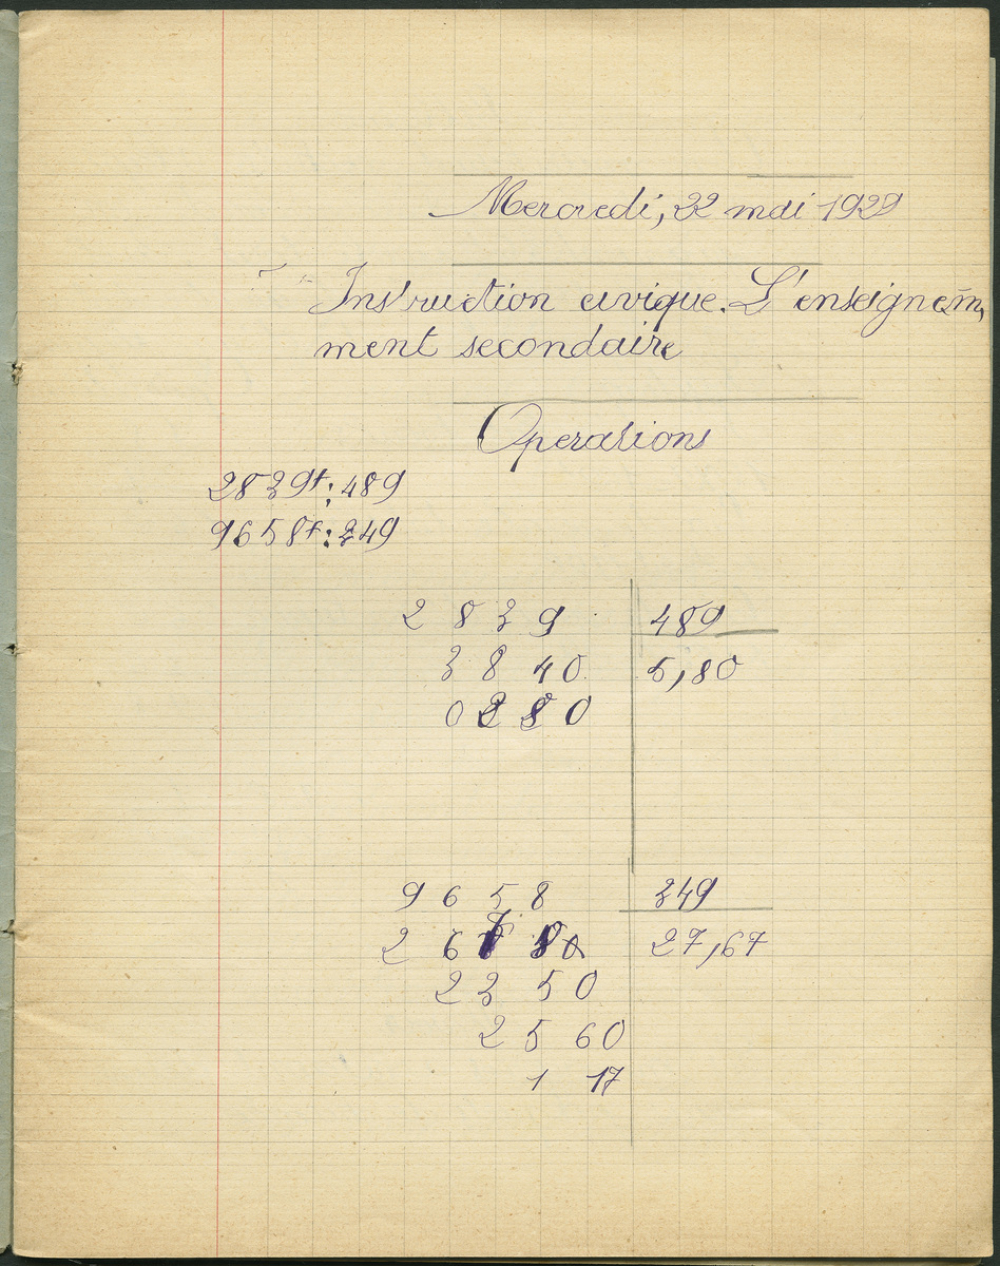 Mercredi, 22 mai 1929
Instruction civique. L'enseignem,
ment secondaire
Operations
2839f : 489
9658f : 349
2 8 3 9 489
3 8 40 5,80
0 2 8 0
9 6 5 8 349
2 6 7 8 0 27,67
2 3 5 0
2 5 60
1 17